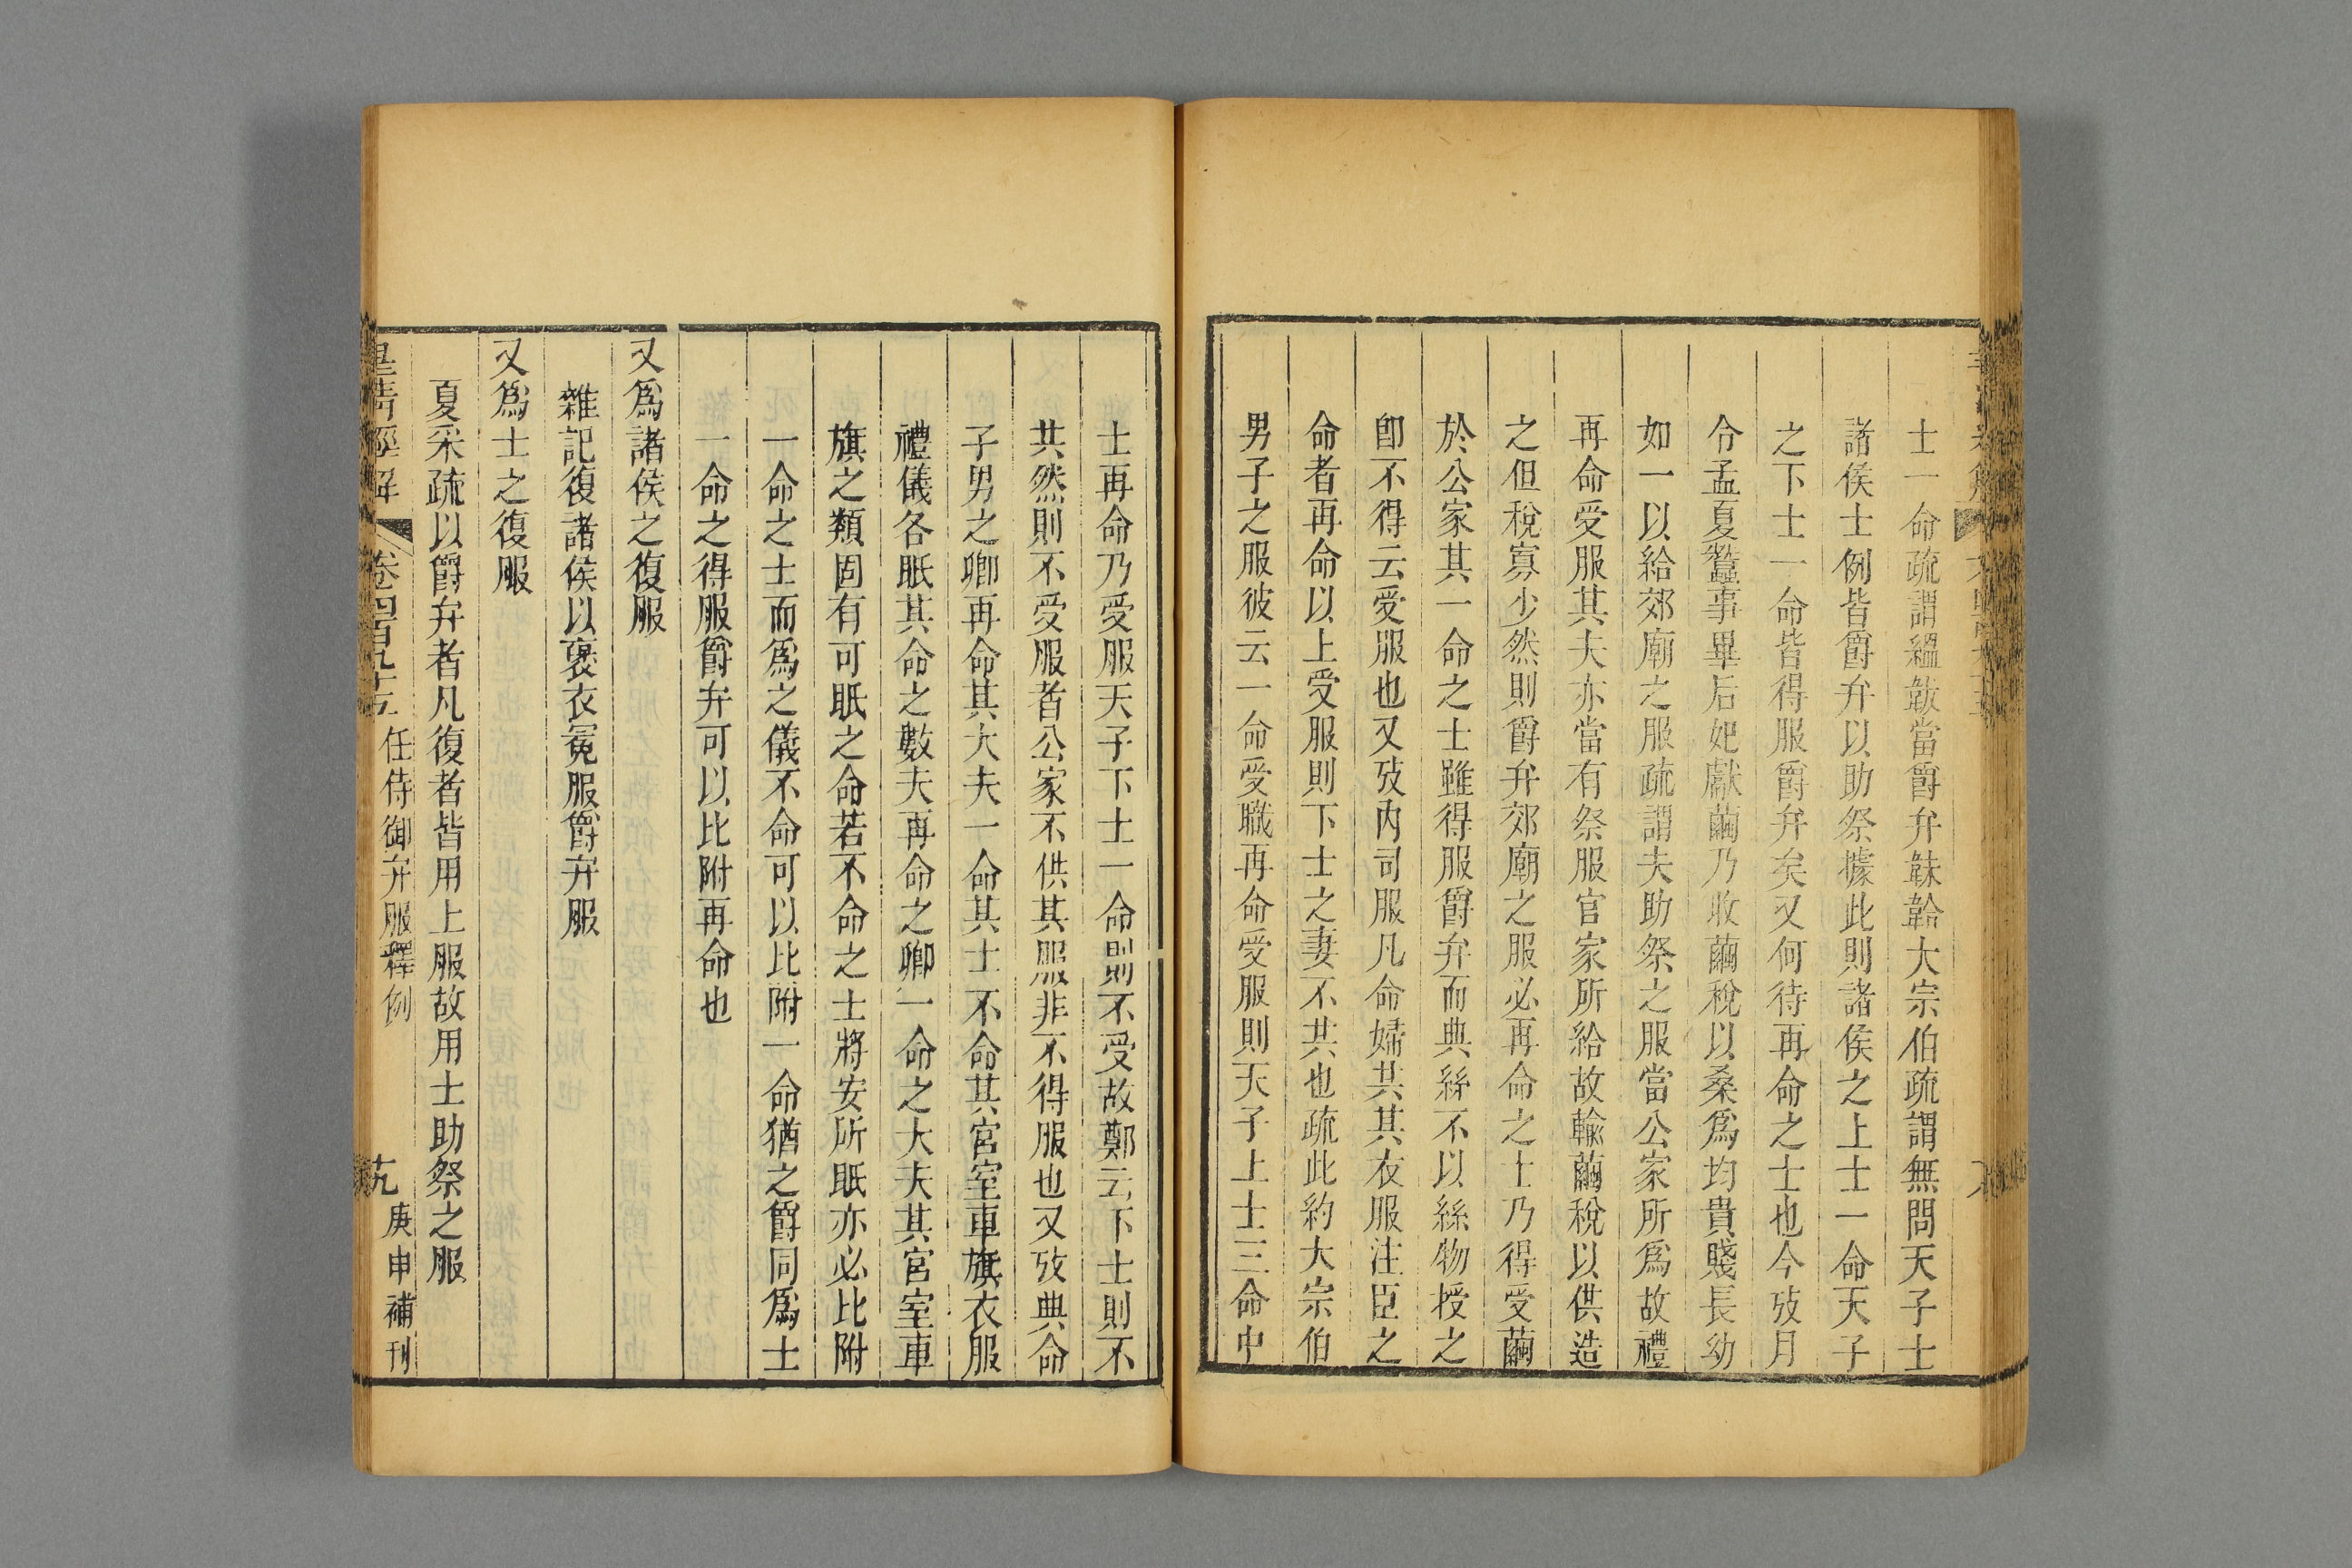 士一命疏謂縕韍當爵弁韎韐大宗伯疏謂無問天子士
諸侯士例皆爵弁以助祭據此則諸侯之上士一命天子
之下士一命皆得服爵弁矣又何待再命之士也今攷月
令孟夏蠶事畢后妃獻繭乃收繭稅以桑爲均貴賤長幼
如一以給郊廟之服疏謂夫助祭之服當公家所爲故禮
再命受服其夫亦當有祭服官家所給故輸繭稅以供造
之但稅寡少然則爵弁郊廟之服必再命之士乃得受繭
於公家其一命之士雖得服爵弁而典絲不以絲物授之
卽不得云受服也又攷內司服凡命婦共其衣服注臣之
命者再命以上受服則下士之妻不共也疏此約大宗伯
男子之服彼云一命受職再命受服則天子上士三命中
士再命乃受服天子下士一命則不受故鄭云下士則不
共然則不受服者公家不供其服非不得服也又攷典命
子男之卿再命其大夫一命其士不命其宮室車旗衣服
禮儀各眂其命之數夫再命之卿一命之大夫其宮室車
旗之類固有可眂之命若不命之士將安所眂亦必比附
一命之士而爲之儀不命可以比附一命猶之爵同爲士
一命之得服爵弁可以比附再命也
又爲諸侯之復服
雜記復諸侯以襃衣冕服爵弁服
又爲士之復服
夏采疏以爵弁者凡復者皆用上服故用士助祭之服
皇淸經解 卷四百九十五 任侍御弁服釋例 十九 庚申補刊